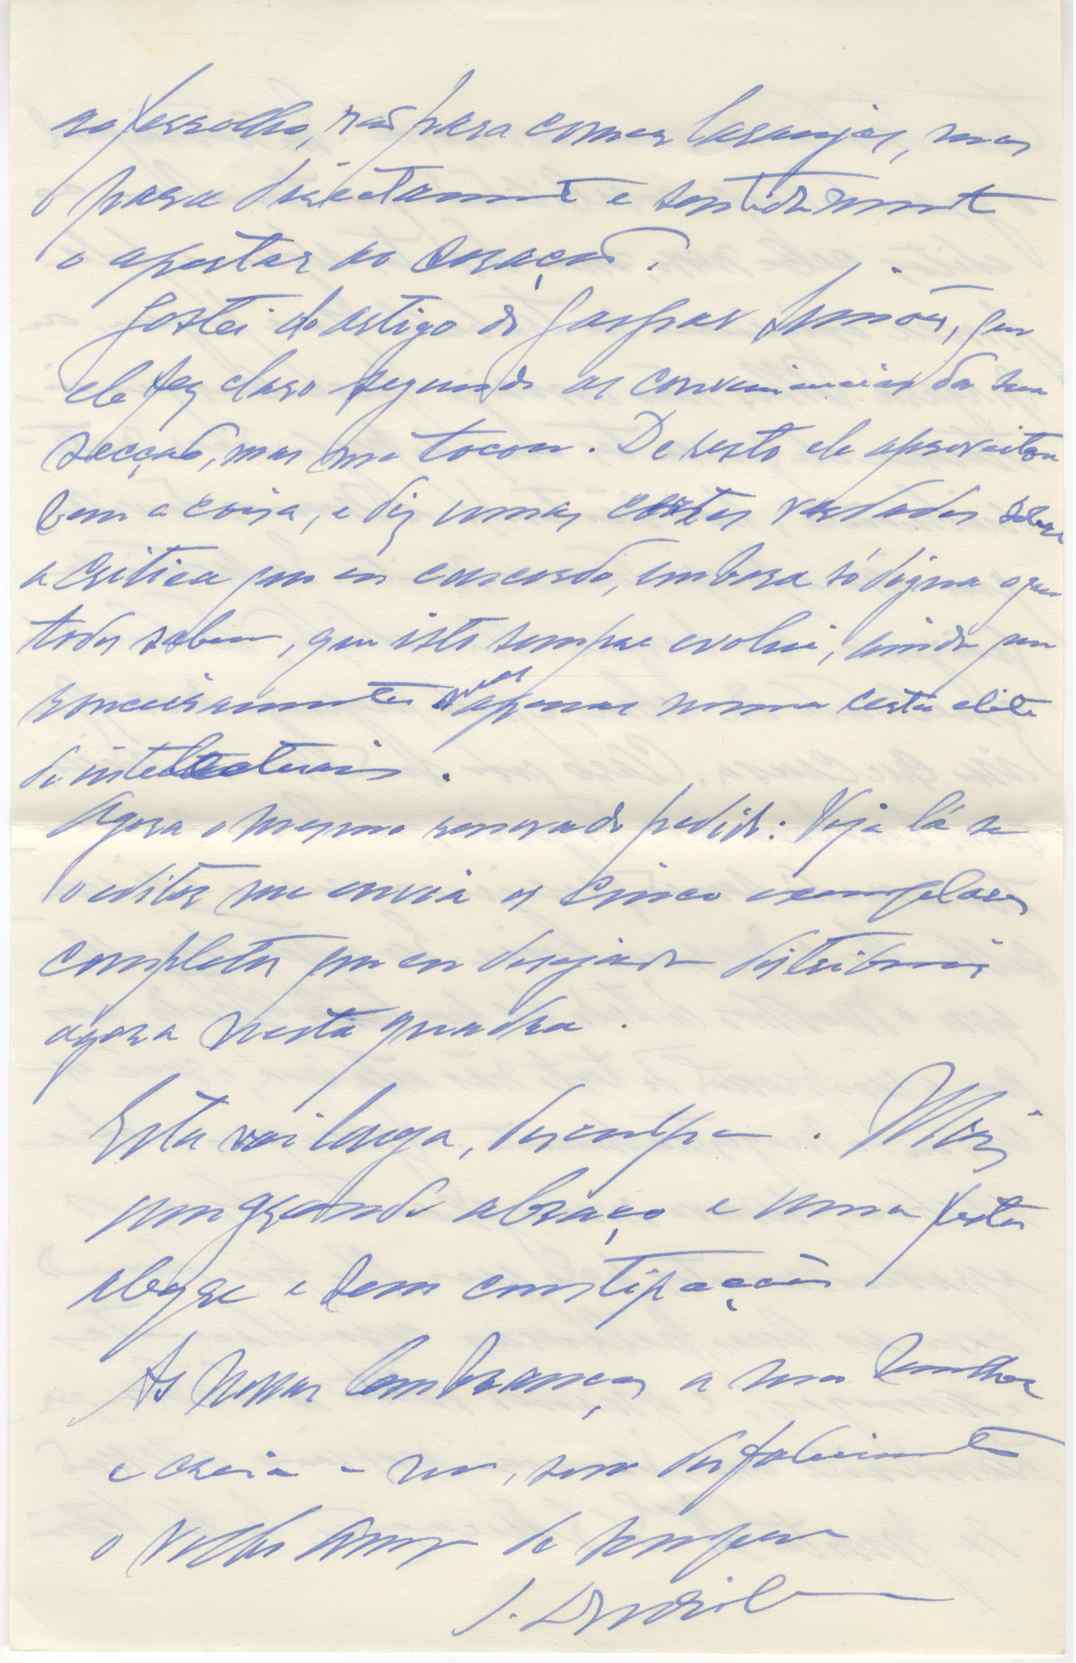 no ferrolho, não para comer laranjas, mas
para directamente e sentidamente
o apertar ao coração.
Gostei do artigo do Gaspar Simões, que
ele fez claro segundo as conveniencias da sua
secção, mas me tocou. De resto ele aproveitou
bem a coisa, e diz umas certas verdades sobre
a critica que eu concordo, embora só digna o que
todos sabem, que isto sempre evolui, ainda que
ronceiramente mas apenas numa certa elite
de intelectuais.
Agora o mesmo renovado pedido: Veja lá se
o editor me envia os cinco exemplares
completos que eu desejava distribuir
agora nesta quadra.
Esta vai longa, desculpe. Mais
um grande abraço e uma festa
alegre e sem constipações
As nossas lembranças a sua Senhora
e creia-me, sem desfalecimento
o velho amigo de sempre